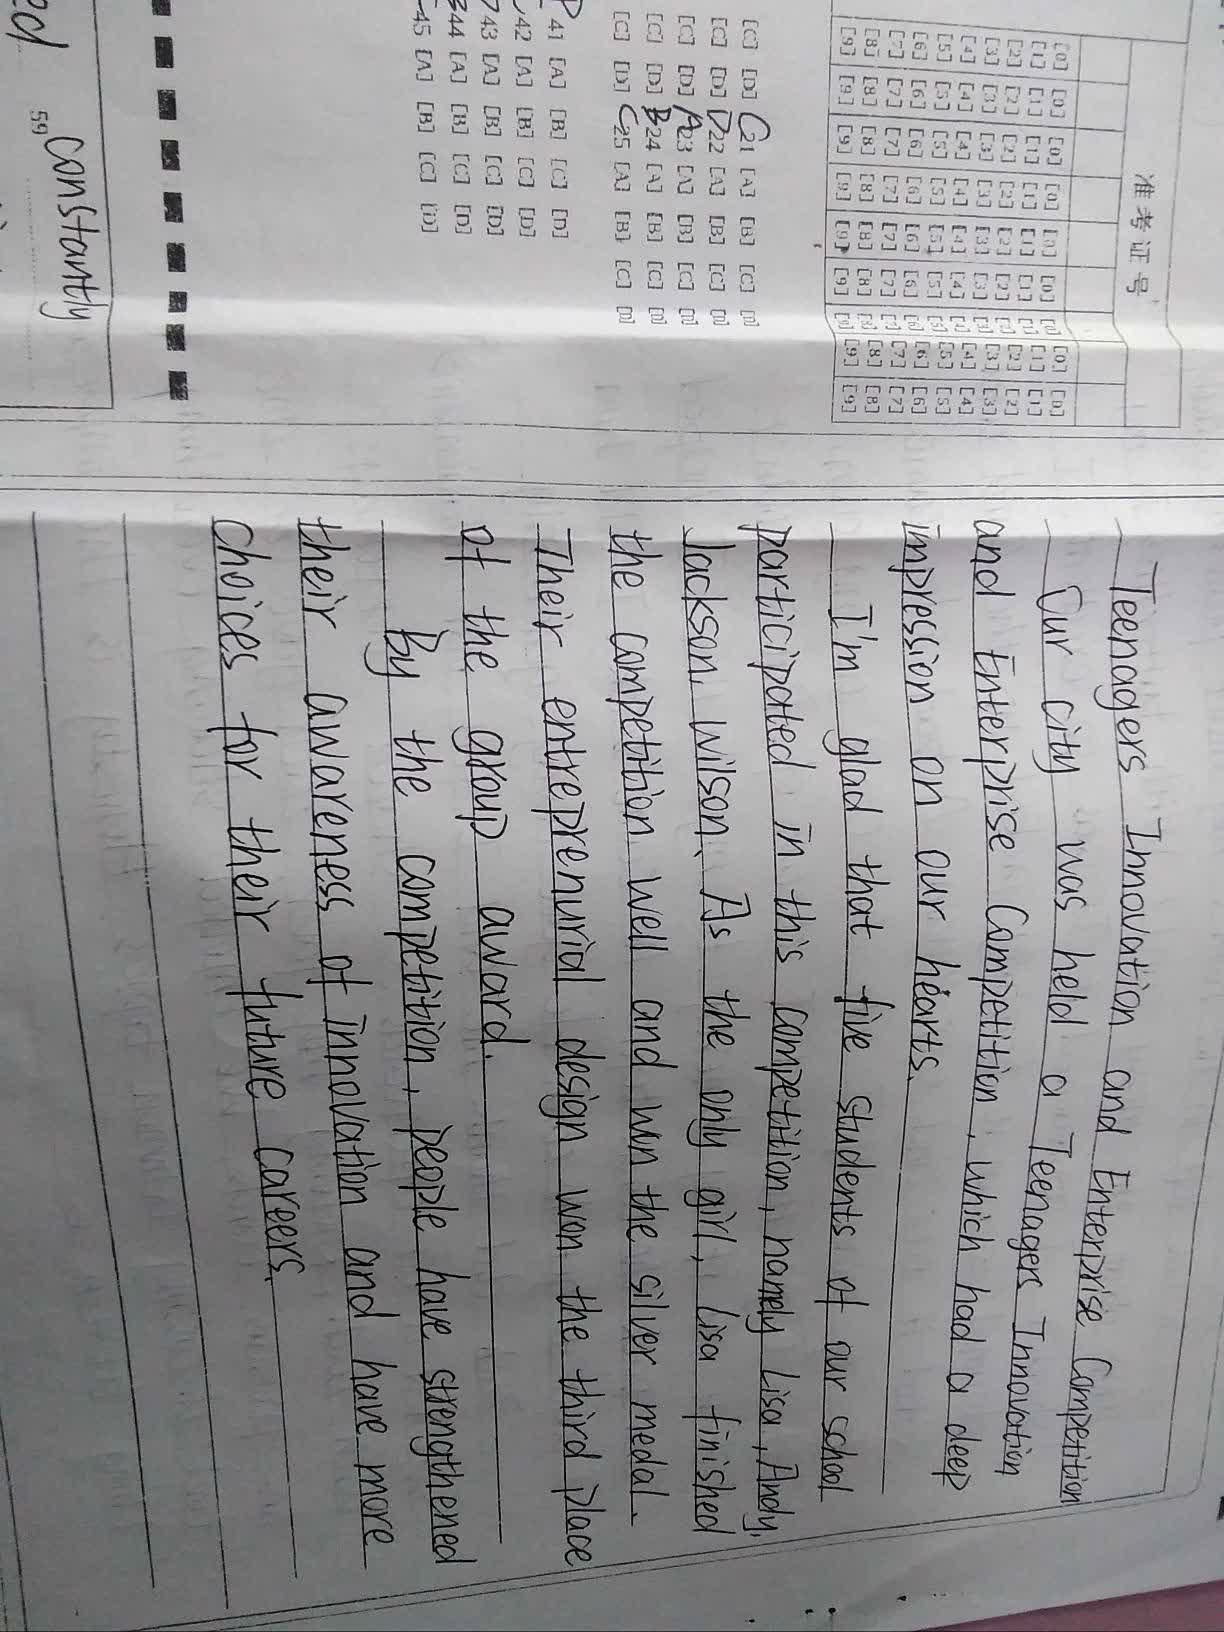 准考证号
[0] [0] [0] [0] [0] [0] [0] [0] [0]
[1] [1] [1] [1] [1] [1] [1] [1] [1]
[2] [2] [2] [2] [2] [2] [2] [2] [2]
[3] [3] [3] [3] [3] [3] [3] [3] [3]
[4] [4] [4] [4] [4] [4] [4] [4] [4]
[5] [5] [5] [5] [5] [5] [5] [5] [5]
[6] [6] [6] [6] [6] [6] [6] [6] [6]
[7] [7] [7] [7] [7] [7] [7] [7] [7]
[8] [8] [8] [8] [8] [8] [8] [8] [8]
[9] [9] [9] [9] [9] [9] [9] [9] [9]
[C] [D] C 21 [A] [B] [C] [D]
[C] [D] D 22 [A] [B] [C] [D]
[C] [D] A 23 [A] [B] [C] [D]
[C] [D] B 24 [A] [B] [C] [D]
[C] [D] C 25 [A] [B] [C] [D]
41 [A] [B] [C] [D]
42 [A] [B] [C] [D]
43 [A] [B] [C] [D]
44 [A] [B] [C] [D]
45 [A] [B] [C] [D]
59 constantly
Teenagers Innovation and Enterprise Competition
Our city was held a Teenagers Innovation
and Enterprise Competition, which had a deep
impression on our hearts.
I'm glad that five students of our school
participated in this competition, namely Lisa, Andy,
Jackson, Wilson. As the only girl, Lisa finished
the competition well and won the silver medal.
Their entreprenurial design won the third place
of the group award.
By the competition, people have strengthened
their awareness of innovation and have more
choices for their future careers.